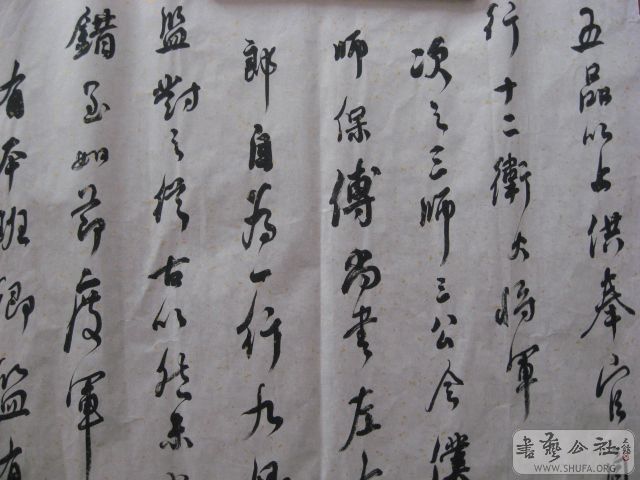 五品以上供奉官
行十二衛大將軍
次之三師三公令僕
師保傅尚書左
郎自為一行九
監對之從古以然未
錯至如節度軍
有本班卿監有
書藝公社
WWW.SHUFA.ORG